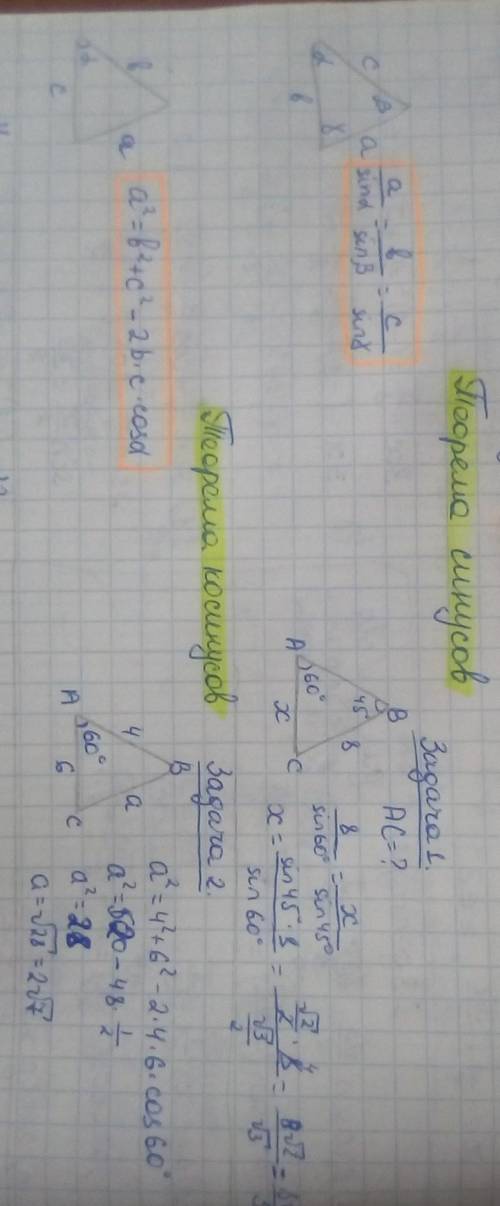 Теорема синусов
c
β
α
γ
a
b
a/sinα = b/sinβ = c/sinγ
Задача 1.
AC = ?
B
45°
8
60°
A
x
C
8/sin60° = x/sin45°
x = sin45°·8/sin60° = √2/2·8 4/√3/2 = 8√2/√3 =
Теорема косинусов
b
α
a
c
a² = b² + c² - 2b·c·cosα
Задача 2.
B
4
a
60°
A
6
C
a² = 4² + 6² - 2·4·6·cos60°
a² = 52 - 48·1/2
a² = 28
a = √28 = 2√7